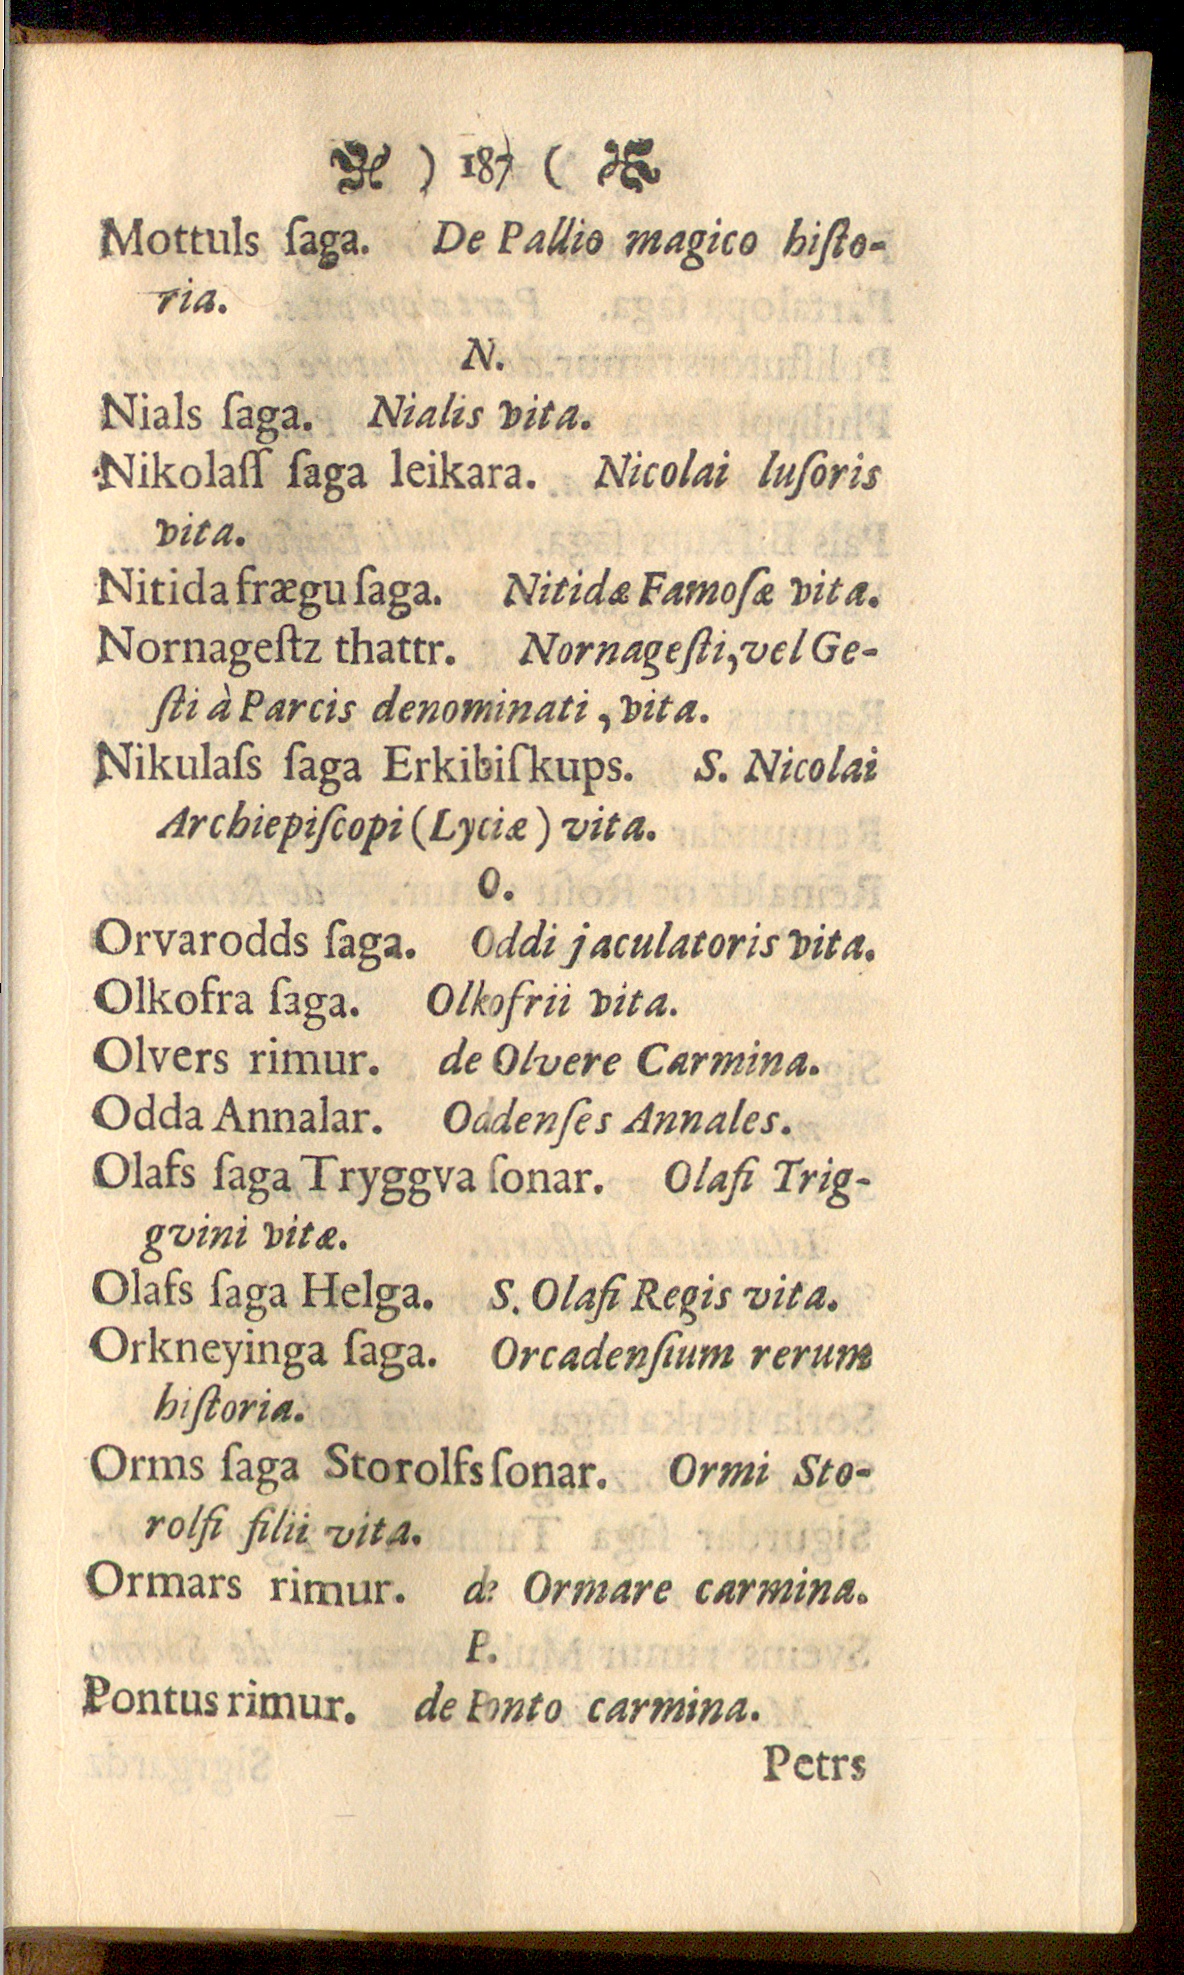 ) 187 (
Mottuls ſaga. De Pallio magico hiſto-
ria.
N.
Nials ſaga. Nialis vita.
Nikolaſſ ſaga leikara. Nicolai luſoris
vita.
Nitida frægu ſaga. Nitidæ Famoſæ vita.
Nornageſtz thattr. Nornageſti, vel Ge-
ſti à Parcis denominati, vita.
Nikulaſs ſaga Erkibiſkups. S. Nicolai
Archiepiſcopi (Lyciæ) vita.
O.
Orvarodds ſaga. Oddi jaculatoris vita.
Olkofra ſaga. Olkofrii vita.
Olvers rimur. de Olvere Carmina.
Odda Annalar. Oddenſes Annales.
Olafs ſaga Tryggva ſonar. Olafi Trig-
gvini vitæ.
Olafs ſaga Helga. S. Olafi Regis vita.
Orkneyinga ſaga. Orcadenſium rerum
hiſtoria.
Orms ſaga Storolfs ſonar. Ormi Sto-
rolfi filii vita.
Ormars rimur. de Ormare carmina.
P.
Pontus rimur. de Ponto carmina.
Petrs